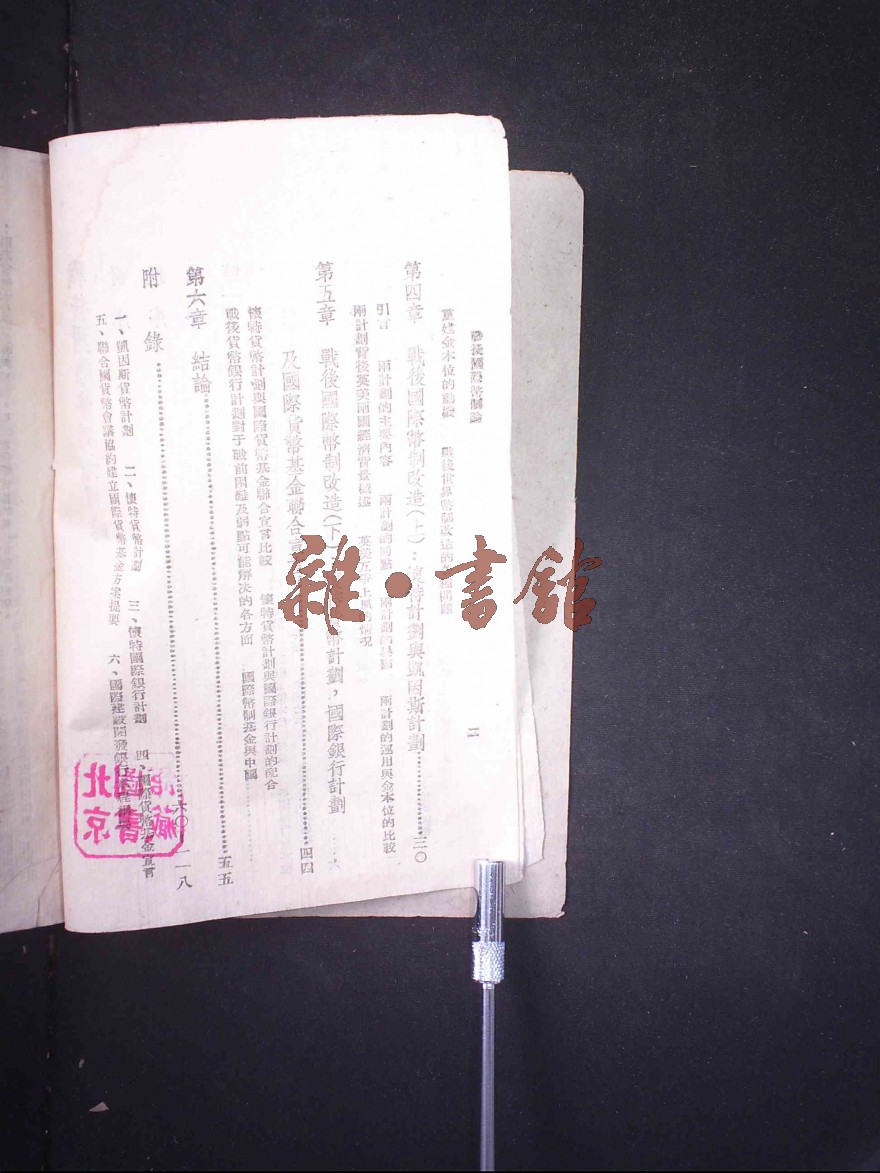 戰後國際幣制論
二
重建金本位的動機 戰後世界幣制改造的
第四章 戰後國際幣制改造(上):懷特計劃與凱因斯計劃 三〇
引言 兩計劃的主要內容 兩計劃的同點 兩計劃的異點 兩計劃的運用與金本位的比較
兩計劃背後英美兩國經濟背景概述 英美互爭上風的情況
第五章 戰後國際幣制改造(下) 幣計劃,國際銀行計劃
及國際貨幣基金聯合宣言 四四
懷特貨幣計劃與國際貨幣基金聯合宣言比較 懷特貨幣計劃與國際銀行計劃的配合
戰後貨幣銀行計劃對于戰前困難及弱點可能解決的各方面 國際幣制基金與中國
第六章 結論 五五
附錄 六〇—一一八
一、凱因斯貨幣計劃 二、懷特貨幣計劃 三、懷特國際銀行計劃 四、國際貨幣基金宣言
五、聯合國貨幣會議協約建立國際貨幣基金方案提要 六、國際建設開發銀行
雜·書館
北京
藏書